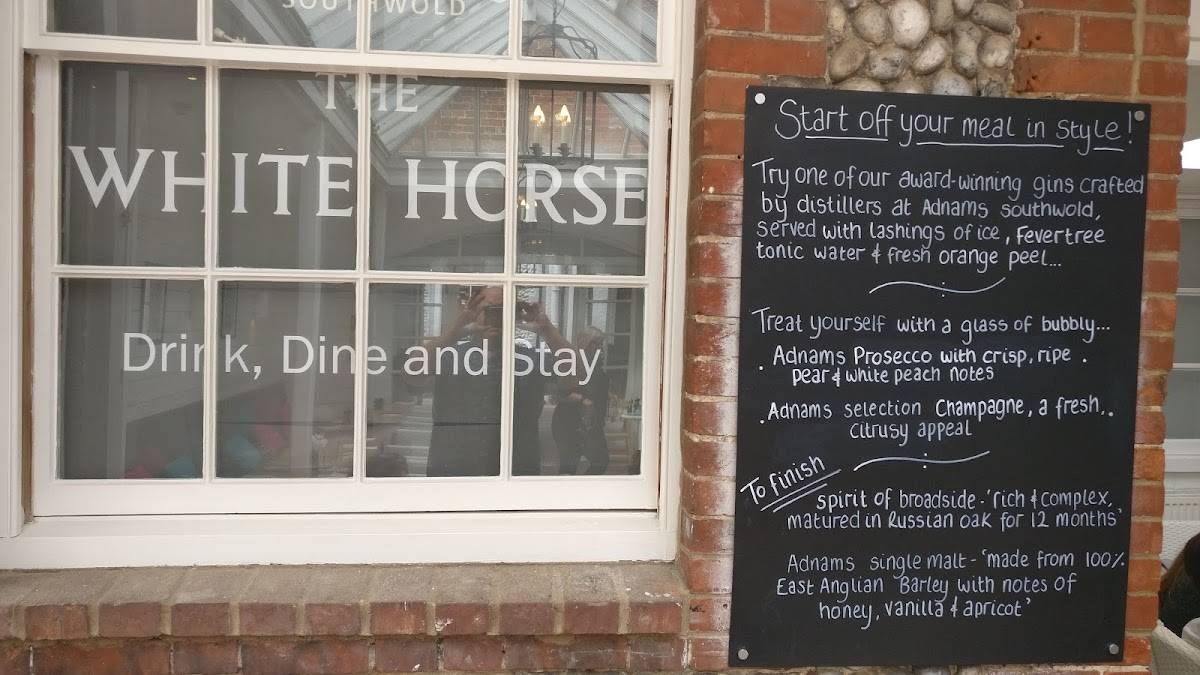 SOUTHWOLD
THE
WHITE HORSE
Drink, Dine and Stay
Start off your meal in style!
Try one of our award-winning gins crafted
by distillers at Adnams southwold,
served with lashings of ice, Fevertree
tonic water & fresh orange peel...
Treat yourself with a glass of bubbly...
. Adnams Prosecco with crisp, ripe .
pear & white peach notes
. Adnams selection Champagne, a fresh, .
citrusy appeal
To finish
spirit of broadside - 'rich & complex,
matured in Russian oak for 12 months'
Adnams single malt - 'made from 100%
East Anglian Barley with notes of
honey, vanilla & apricot'